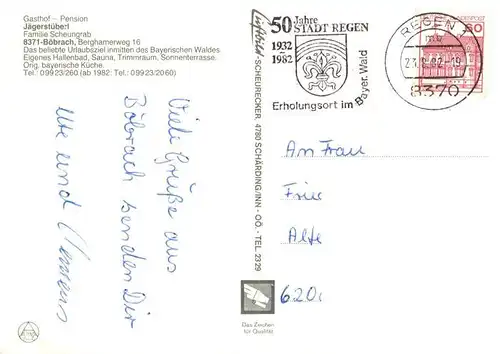 Gasthof – Pension
Jägerstüberl
Familie Scheungrab
8371-Böbrach, Berghamerweg 16
Das beliebte Urlaubsziel inmitten des Bayerischen Waldes.
Eigenes Hallenbad, Sauna, Trimmraum, Sonnenterrasse.
Orig. bayerische Küche.
Tel.: 09923/260 (ab 1982: Tel.: 09923/2060)
Viele Grüße aus
Böbrach senden Dir
Ute und
Luftbild - SCHEURECKER, 4780 SCHÄRDING/INN - OÖ. - TEL. 2329
50 Jahre
STADT REGEN
1932
1982
Erholungsort im Bayer. Wald
REGEN 1
8370
BUNDESPOST
60
An Frau
Alte
620
Das Zeichen
für Qualität